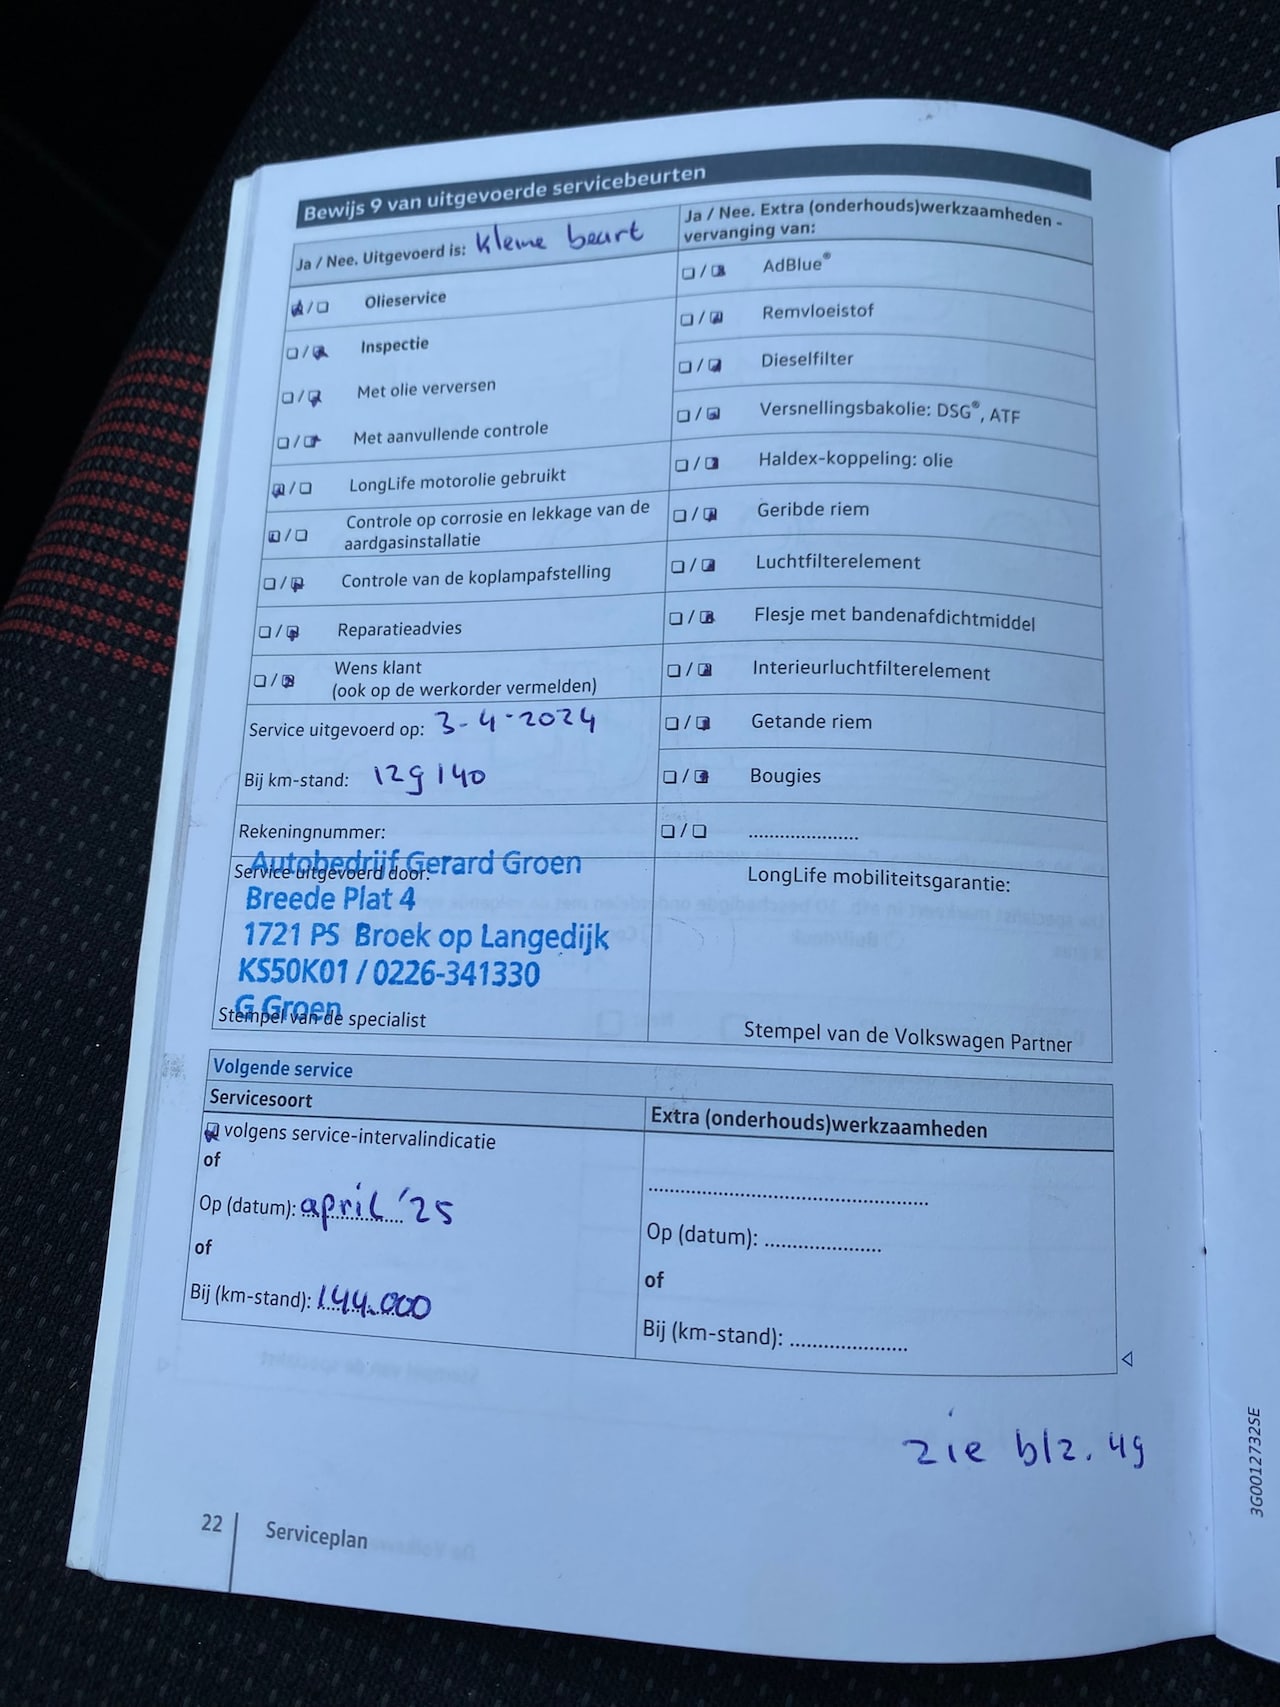 Bewijs 9 van uitgevoerde servicebeurten
Ja / Nee. Uitgevoerd is: kleine beurt
Olieservice
Inspectie
Met olie verversen
Met aanvullende controle
LongLife motorolie gebruikt
Controle op corrosie en lekkage van de
aardgasinstallatie
Controle van de koplampafstelling
Reparatieadvies
Wens klant
(ook op de werkorder vermelden)
Service uitgevoerd op: 3-4-2024
Bij km-stand: 129 140
Rekeningnummer:
Service uitgevoerd door:
Autobedrijf Gerard Groen
Breede Plat 4
1721 PS Broek op Langedijk
KS50K01 / 0226-341330
G Groen
Stempel van de specialist
Ja / Nee. Extra (onderhouds)werkzaamheden -
vervanging van:
AdBlue®
Remvloeistof
Dieselfilter
Versnellingsbakolie: DSG®, ATF
Haldex-koppeling: olie
Geribde riem
Luchtfilterelement
Flesje met bandenafdichtmiddel
Interieurluchtfilterelement
Getande riem
Bougies
.....................
LongLife mobiliteitsgarantie:
Stempel van de Volkswagen Partner
Volgende service
Servicesoort
volgens service-intervalindicatie
of
Op (datum): april '25
of
Bij (km-stand): 144.000
Extra (onderhouds)werkzaamheden
Op (datum): .....................
of
Bij (km-stand): .....................
zie blz. 49
22
Serviceplan
3G0012732SE